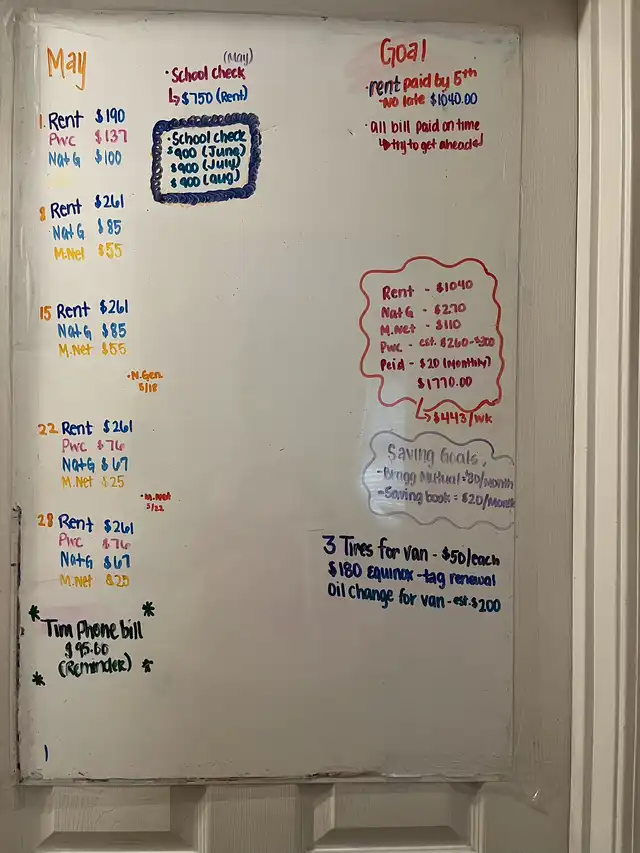 May
1 Rent $190
Pwc $137
Nat G $100
8 Rent $261
Nat G $85
M.Net $55
15 Rent $261
Nat G $85
M.Net $55
•N.Gen
5/18
22 Rent $261
Pwc $76
Nat G $67
M.Net $25
•M.Net
5/22
28 Rent $261
Pwc $76
Nat G $67
M.Net $25
Tim Phone bill
$95.00
(Reminder)
(May)
•School check
↳$750 (Rent)
•School check
$900 (June)
$900 (July)
$900 (aug)
Goal
•rent paid by 5th
-No late $1040.00
•all bill paid on time
↳try to get ahead!
Rent - $1040
Nat G - $270
M.Net - $110
Pwc - est. $260-$300
Peid - $20 (Monthly)
$1770.00
↳$443/wk
Saving Goals,
-Bragg Mutual=$80/Month
-Saving book = $20/Month
3 Tires for van - $50/each
$180 Equinox -tag renewal
Oil change for van -est.$200